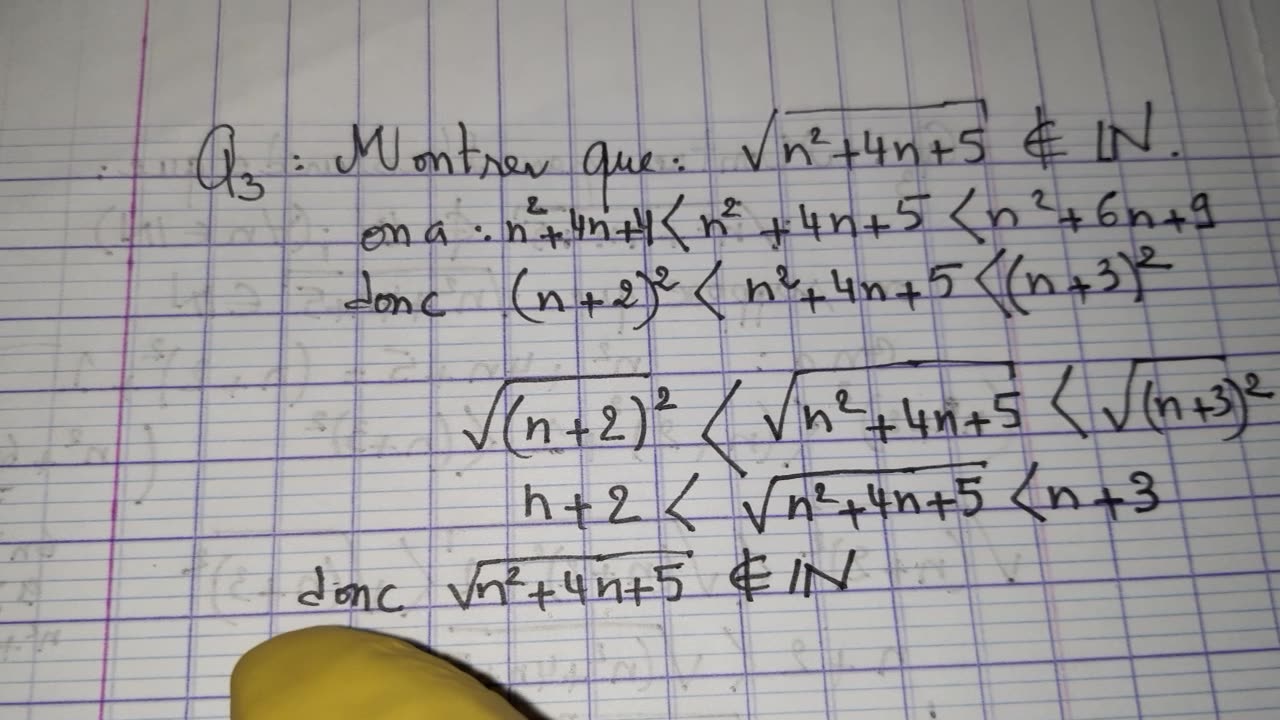 Q₃ : Montrer que : √(n²+4n+5) ∉ ℕ.
on a : n²+4n+4 < n² + 4n+5 < n²+6n+9
donc (n+2)² < n²+4n+5 < (n+3)²
√(n+2)² < √(n²+4n+5) < √(n+3)²
n+2 < √(n²+4n+5) < n+3
donc √(n²+4n+5) ∉ ℕ